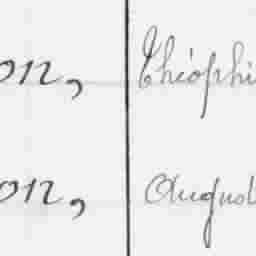 on, Théophi
on, August